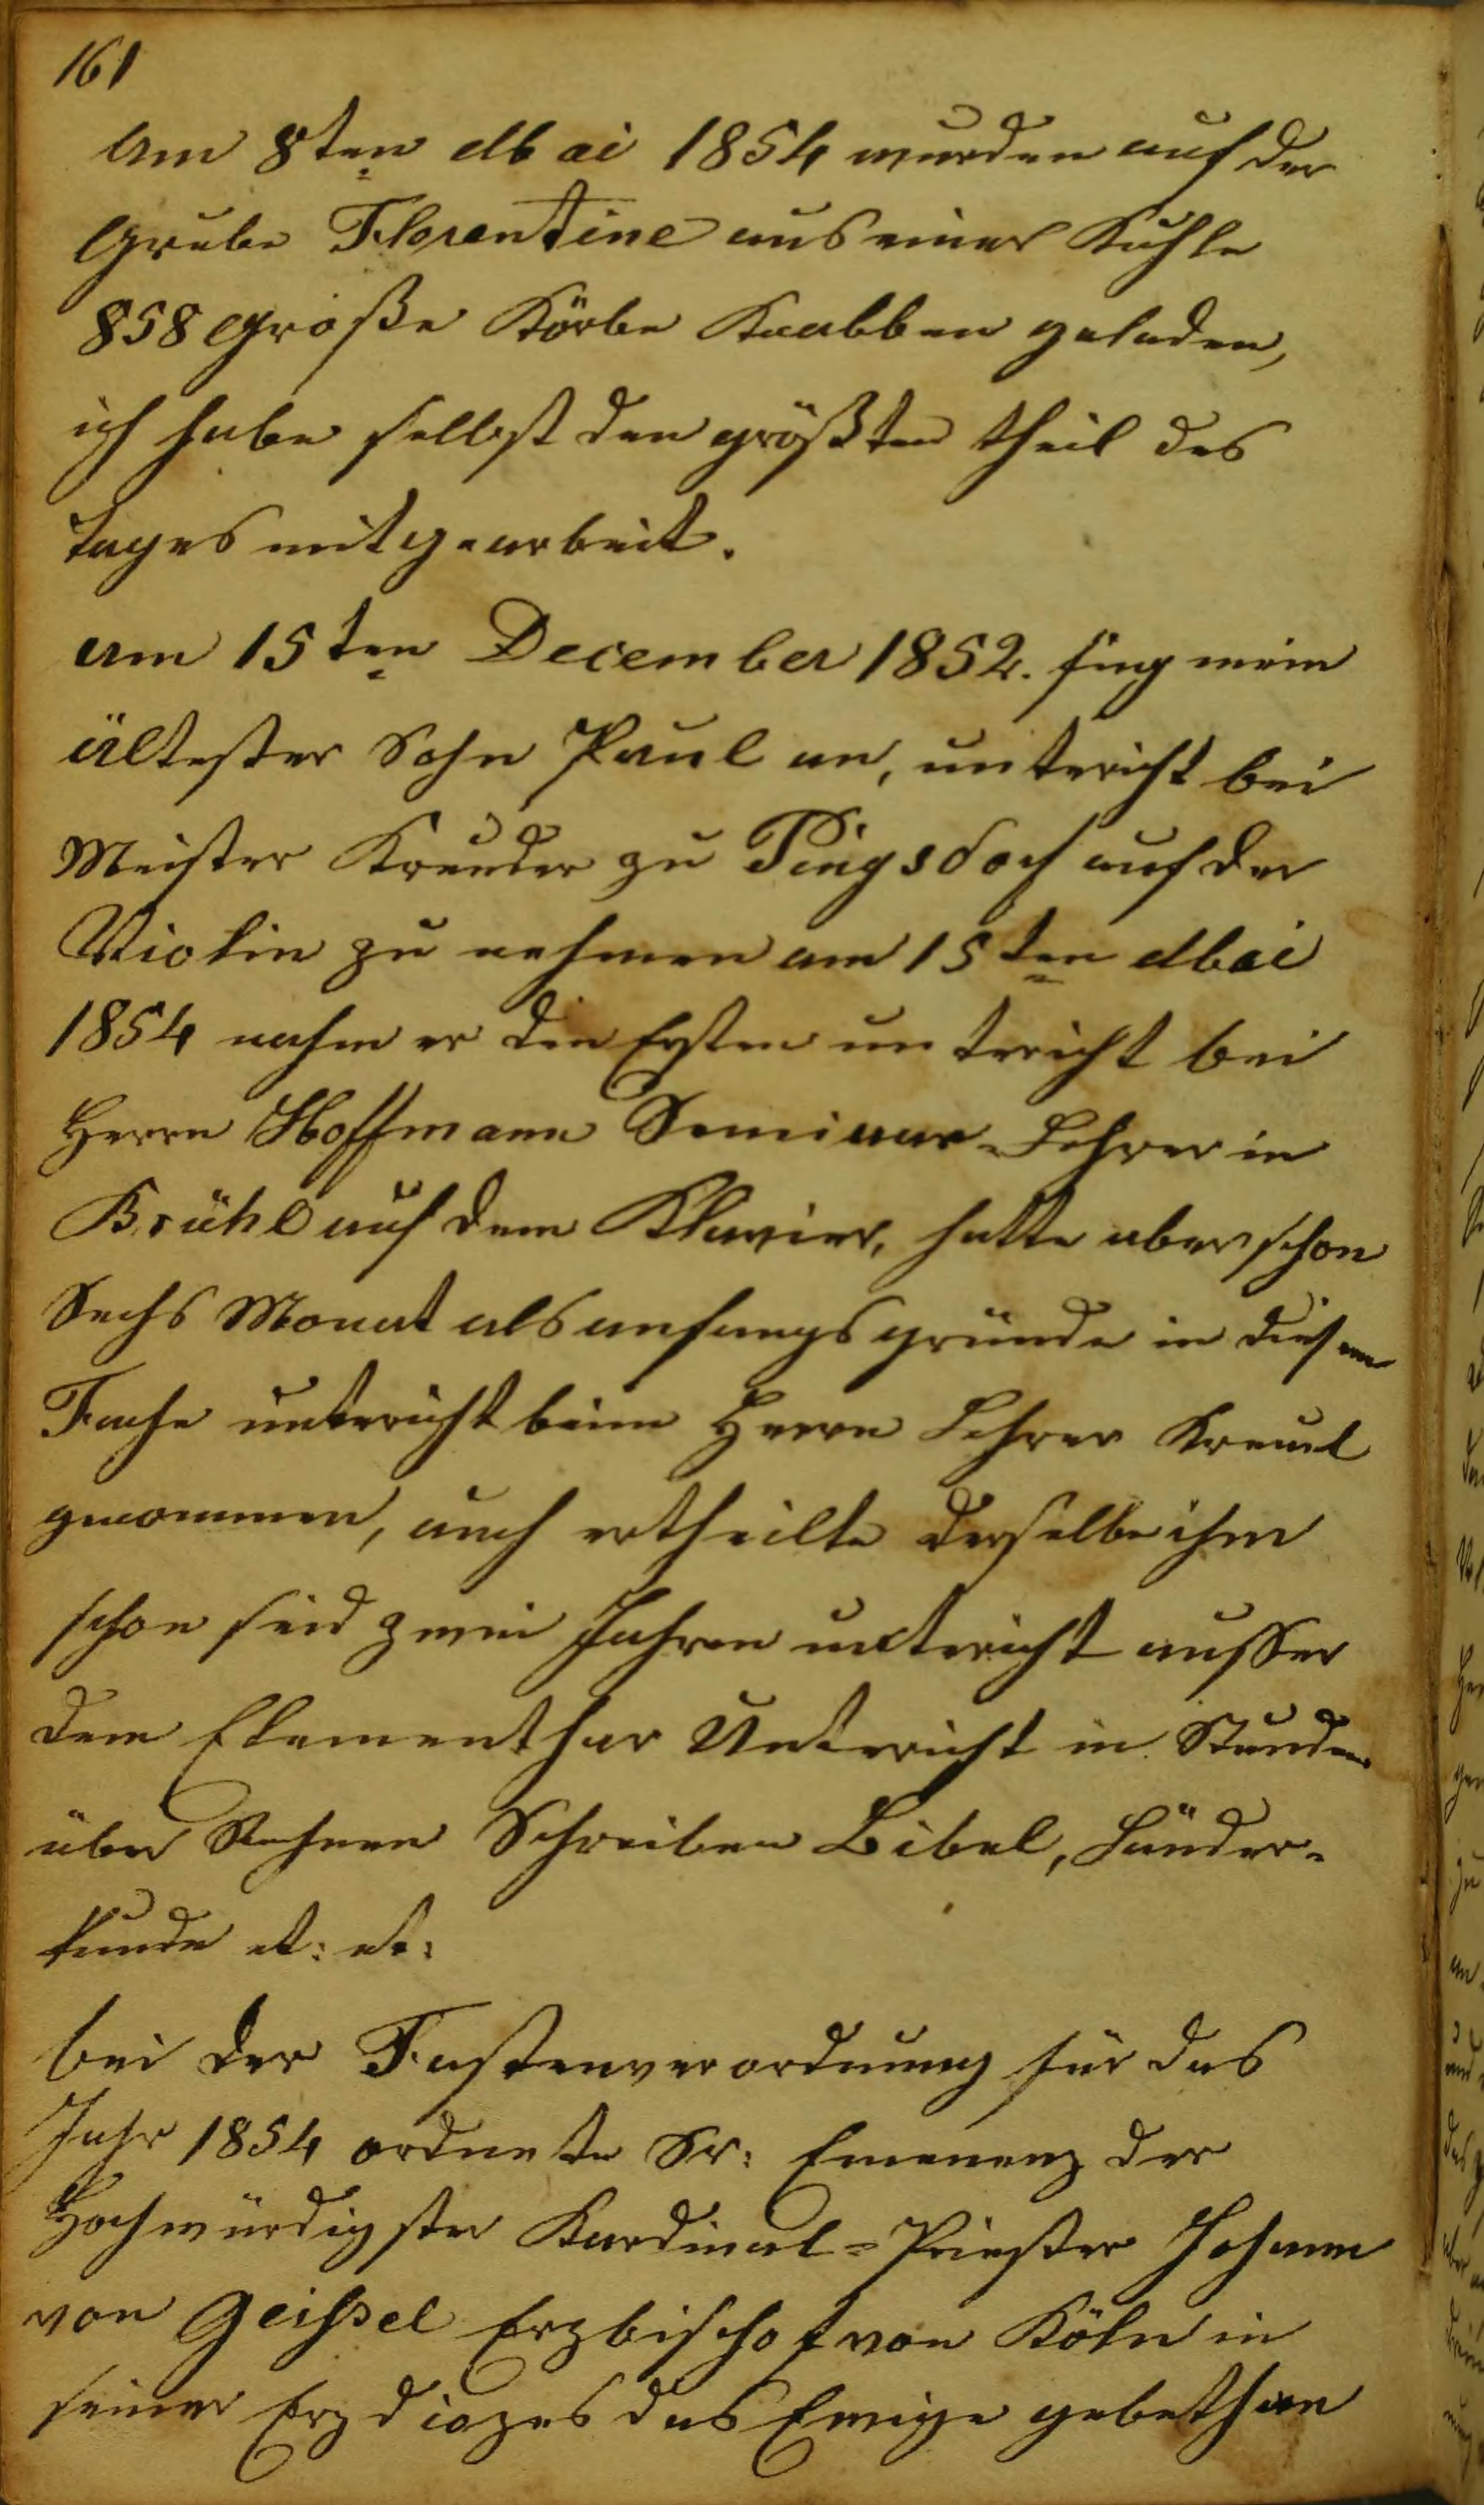 161
Am 8ten Mai 1854 wurden auf der
Grube Florentine aus einer Kuhle
858 Große Körbe Knabben geladen,
ich habe selbst den größten theil des
tages mitgearbeit.
am 15ten December 1852. fing mein
ältester Sohn Paul an, untericht bei
Meister Kreuder zu Pingsdorf auf der
Violin zu nehmen am 15ten Mai
1854 nahm er den Ersten untericht bei
Herrn Hoffmann Seminar-Lehrer in
Brühl auf dem Klavier, hatte aber schon
Sechs Monat als anfangsgründe in diesem
Fache untericht beim Herrn Lehrer Kreuel
genommen, auch ertheilte derselbe ihm
schon seid zwei Jahren untericht ausser
dem Elementhar Untericht in Stunden
über Rechnen Schreiben Bibel, Länder-
kunde et: et:
bei der Fastenverordnung für das
Jahr 1854 ordnete Sr: Emenenz der
Hochwürdigster Kardinal-Priester Johann
von Geissel Erzbischof von Köln in
seiner Erzdiozes das Ewige gebeth an